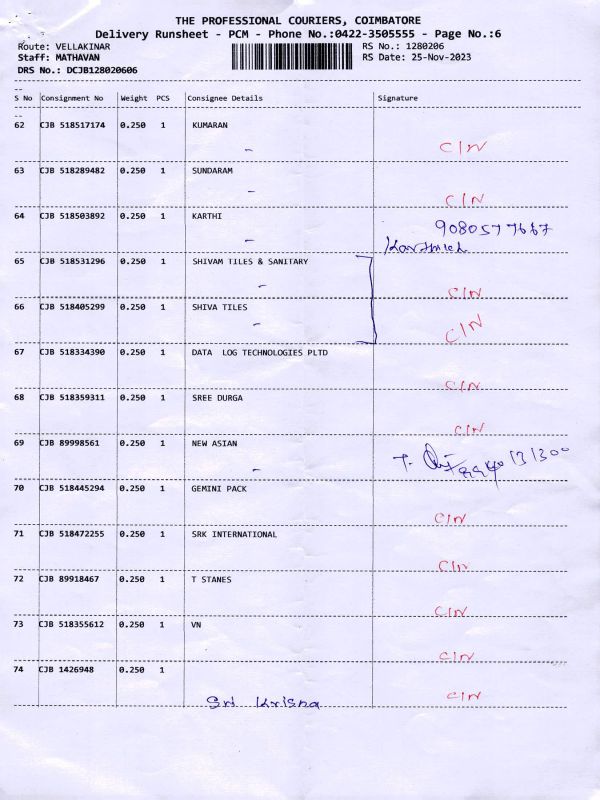 THE PROFESSIONAL COURIERS, COIMBATORE
Delivery Runsheet - PCM - Phone No.:0422-3505555 - Page No.:6
Route: VELLAKINAR RS No.: 1280206
Staff: MATHAVAN RS Date: 25-Nov-2023
DRS No.: DCJB128020606
S No Consignment No Weight PCS Consignee Details Signature
62 CJB 518517174 0.250 1 KUMARAN
- C/N
63 CJB 518289482 0.250 1 SUNDARAM
- C/N
64 CJB 518503892 0.250 1 KARTHI
9080577667
- Karthick
65 CJB 518531296 0.250 1 SHIVAM TILES & SANITARY
- C/N
66 CJB 518405299 0.250 1 SHIVA TILES
- C/N
67 CJB 518334390 0.250 1 DATA LOG TECHNOLOGIES PLTD
C/N
68 CJB 518359311 0.250 1 SREE DURGA
C/N
69 CJB 89998561 0.250 1 NEW ASIAN
-
70 CJB 518445294 0.250 1 GEMINI PACK
C/N
71 CJB 518472255 0.250 1 SRK INTERNATIONAL
C/N
72 CJB 89918467 0.250 1 T STANES
C/N
73 CJB 518355612 0.250 1 VN
C/N
74 CJB 1426948 0.250 1
Sri Krisna C/N